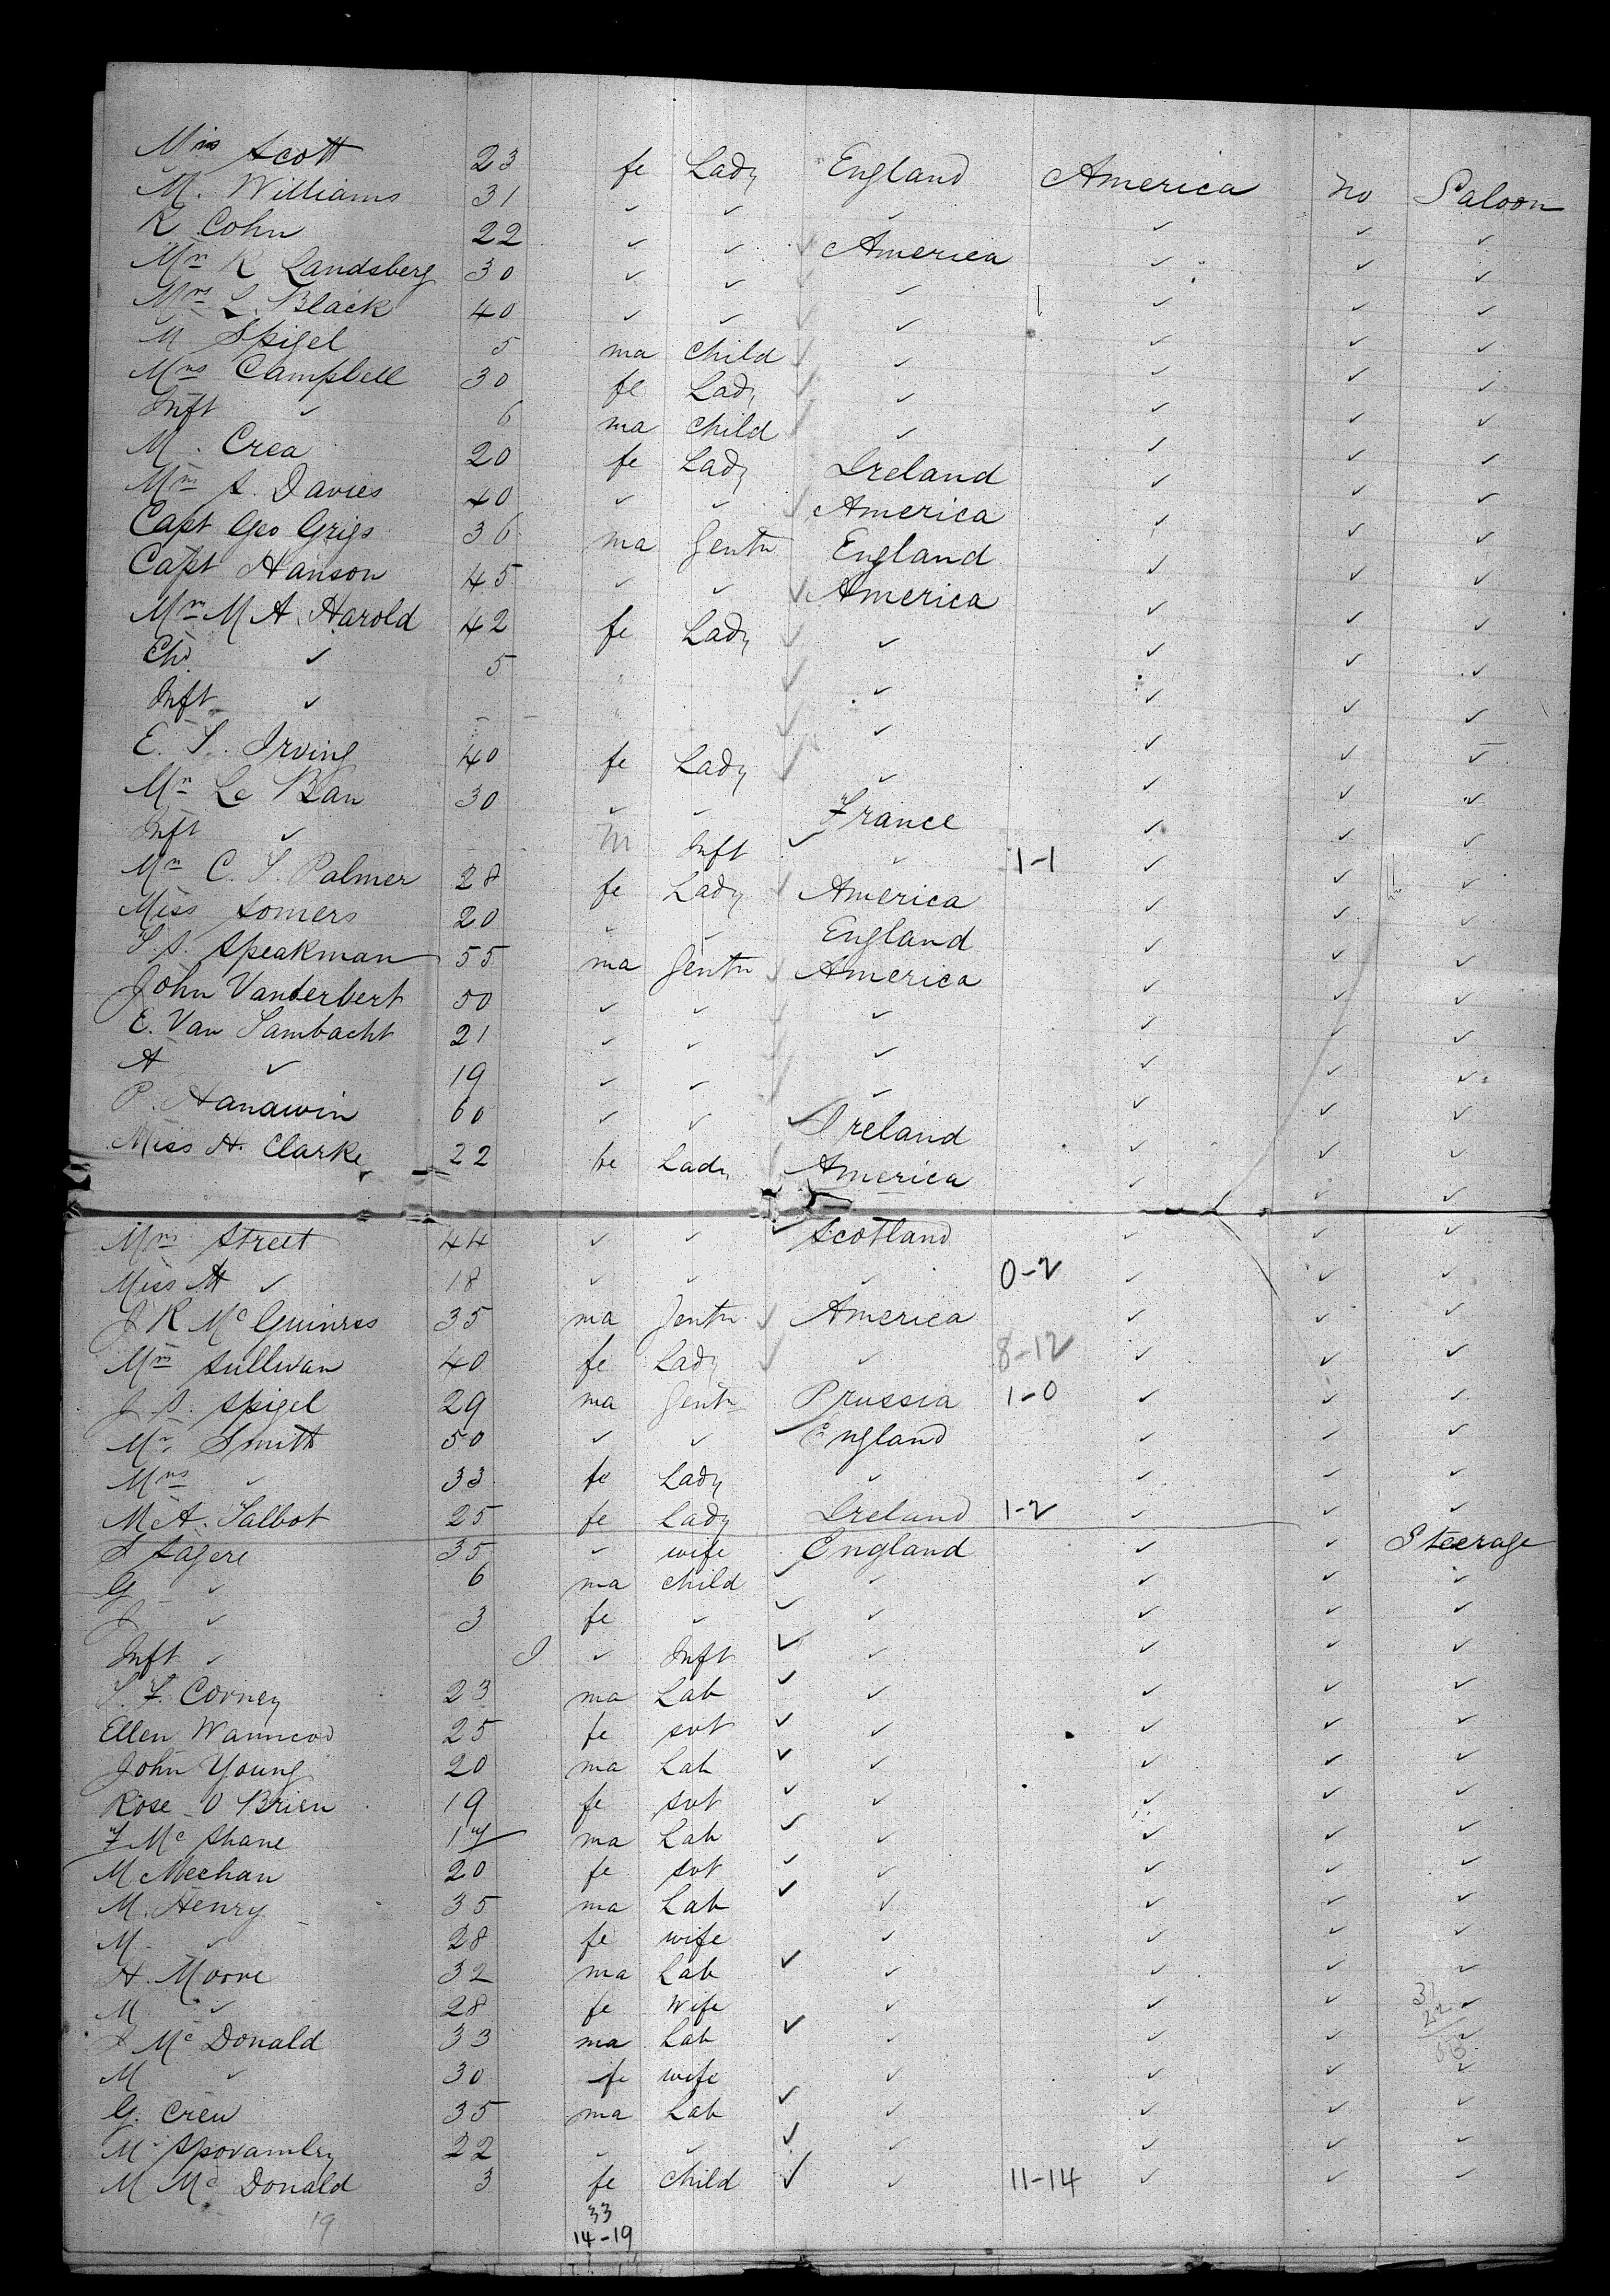 Miss Scott 23 fe Lady England America no Saloon
M. Williams 31 ✓ ✓ ✓ ✓ ✓ ✓
R Cohn 22 ✓ ✓ America ✓ ✓ ✓
Mrs R Landsberg 30 ✓ ✓ ✓ ✓ ✓ ✓
Mrs L. Black 40 ✓ ✓ ✓ ✓ ✓ ✓
M Spigel 5 ma Child ✓ ✓ ✓ ✓
Mrs Campbell 30 fe Lady ✓ ✓ ✓ ✓
Inft ✓ 6 ma Child ✓ ✓ ✓ ✓
M. Crea 20 fe Lady Ireland ✓ ✓ ✓
Mrs S. Davies 40 ✓ ✓ America ✓ ✓ ✓
Capt Geo Grigs 36 ma Gentn England ✓ ✓ ✓
Capt Hanson 45 ✓ ✓ America ✓ ✓ ✓
Mrs M A. Harold 42 fe Lady ✓ ✓ ✓ ✓
Chd ✓ 5 ✓ ✓ ✓ ✓
Inft ✓ ✓ ✓ ✓ ✓
E. S. Irving 40 fe Lady ✓ ✓ ✓ ✓
Mrs Le Ban 30 ✓ ✓ France ✓ ✓ ✓
Inft ✓ m Inft ✓ 1-1 ✓ ✓ ✓
Mrs C. S. Palmer 28 fe Lady America ✓ ✓ ✓
Miss Somers 20 ✓ ✓ England ✓ ✓ ✓
Speakman 55 ma Gentn America ✓ ✓ ✓
John Vanderbert 50 ✓ ✓ ✓ ✓ ✓ ✓
E. Van Sambacht 21 ✓ ✓ ✓ ✓ ✓ ✓
A ✓ 19 ✓ ✓ ✓ ✓ ✓ ✓
P. Hanawin 60 ✓ ✓ Ireland ✓ ✓ ✓
Miss H. Clarke 22 fe Lady America ✓ ✓ ✓
Mrs Street 44 ✓ ✓ Scotland ✓ ✓ ✓
Miss ✓ 18 ✓ ✓ ✓ 0-2 ✓ ✓ ✓
J R McGuiness 35 ma Gentn America ✓ ✓ ✓
Mrs Sullivan 40 fe Lady ✓ 8-12 ✓ ✓ ✓
J. S. Spigel 29 ma Gentn Prussia 1-0 ✓ ✓ ✓
Mr. Smith 50 ✓ ✓ England ✓ ✓ ✓
Mrs ✓ 33 fe Lady ✓ ✓ ✓ ✓
M A. Talbot 25 fe Lady Ireland 1-2 ✓ ✓ ✓
S Sagere 35 ✓ wife England ✓ ✓ Steerage
G ✓ 6 ma child ✓ ✓ ✓ ✓
J ✓ 3 fe ✓ ✓ ✓ ✓ ✓
Inft ✓ ✓ Inft ✓ ✓ ✓ ✓
Corney 23 ma Lab ✓ ✓ ✓ ✓
Ellen 25 fe svt ✓ ✓ ✓ ✓
John Young 20 ma Lab ✓ ✓ ✓ ✓
Rose O Brien 19 fe svt ✓ ✓ ✓ ✓
F McShane ma Lab ✓ ✓ ✓ ✓
M Meehan 20 fe svt ✓ ✓ ✓ ✓
M. Henry 35 ma Lab ✓ ✓ ✓ ✓
M. ✓ 28 fe wife ✓ ✓ ✓ ✓
H. Moore 32 ma Lab ✓ ✓ ✓ ✓
M ✓ 28 fe Wife ✓ ✓ ✓ ✓
McDonald 33 ma Lab ✓ ✓ ✓ ✓
M ✓ 30 fe wife ✓ ✓ ✓ ✓
G. Crew 35 ma Lab ✓ ✓ ✓ ✓
M 22 ✓ ✓ ✓ ✓ ✓ ✓
M McDonald 3 fe Child ✓ 11-14 ✓ ✓ ✓
19 33
14-19